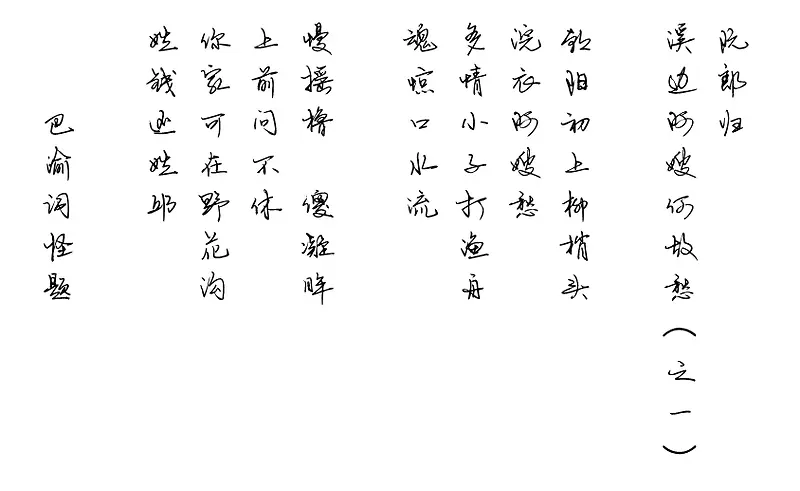 阮郎归
溪边阿嫂何故愁(之一)
朝阳初上柳梢头
浣衣阿嫂愁
多情小子打渔舟
魂惊口水流
慢摇橹 傻凝眸
上前问不休
你家可在野花沟
姓钱还姓邱
巴渝词怪题